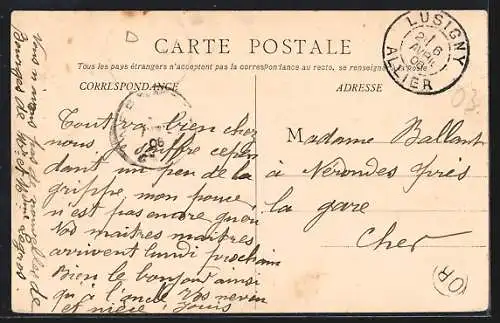 CARTE POSTALE
Tous les pays étrangers n'acceptent pas la correspondance au recto, se renseigner à la poste
CORRESPONDANCE
ADRESSE
LUSIGNY
21 6
AVRIL
ALLIER
D
03
Tout va bien chez
nous, je souffre cepen
dant un peu de la
grippe, mon pouce
n'est pas encore guéri
Nos maîtres maîtres
arrivent lundi prochain
Bien le bonjour ainsi
qu'à l'oncle Vos neveu
et nièce Louis
Madame Ballant
à Nérondes près
la gare
Cher
OR
06
Nous n'avons pas de
Bourges de